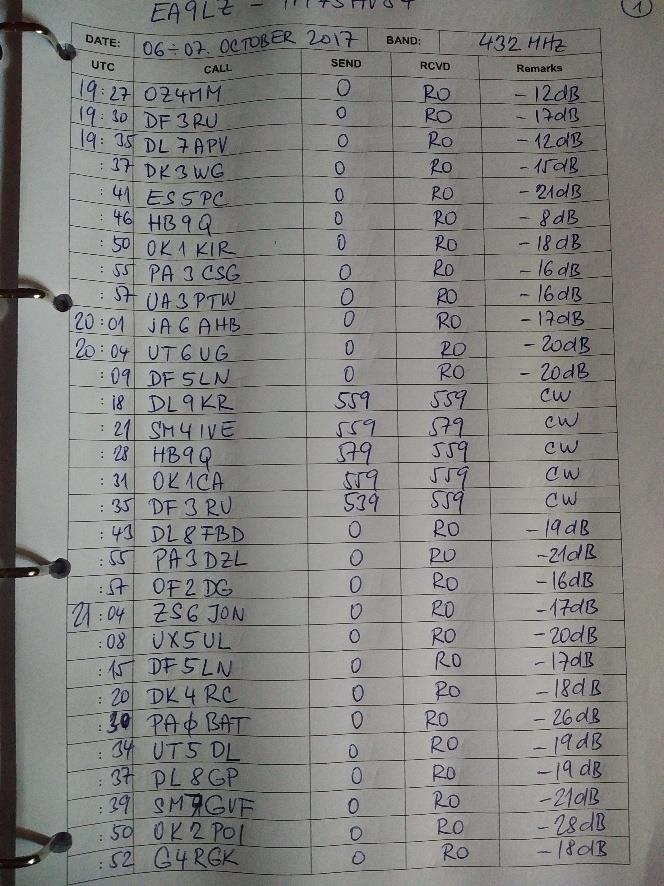 EA9LZ -
1
DATE: 06÷07. OCTOBER 2017 BAND: 432 MHz
UTC CALL SEND RCVD Remarks
19:27 OZ4MM 0 RO -12dB
19:30 DF3RU 0 RO -17dB
19:35 DL7APV 0 RO -12dB
:37 DK3WG 0 RO -15dB
:41 ES5PC 0 RO -21dB
:46 HB9Q 0 RO -8dB
:50 OK1KIR 0 RO -18dB
:55 PA3CSG 0 RO -16dB
:57 UA3PTW 0 RO -16dB
20:01 JA6AHB 0 RO -17dB
20:04 UT6UG 0 RO -20dB
:09 DF5LN 0 RO -20dB
:18 DL9KR 559 559 CW
:21 SM4IVE 559 579 CW
:28 HB9Q 579 559 CW
:31 OK1CA 559 559 CW
:35 DF3RU 539 559 CW
:43 DL8FBD 0 RO -19dB
:55 PA3DZL 0 RO -21dB
:57 OF2DG 0 RO -16dB
21:04 ZS6JON 0 RO -17dB
:08 UX5UL 0 RO -20dB
:15 DF5LN 0 RO -17dB
:20 DK4RC 0 RO -18dB
:30 PAØBAT 0 RO -26dB
:34 UT5DL 0 RO -19dB
:37 DL8GP 0 RO -19dB
:39 SM7GVF 0 RO -21dB
:50 OK2POI 0 RO -28dB
:52 G4RGK 0 RO -18dB